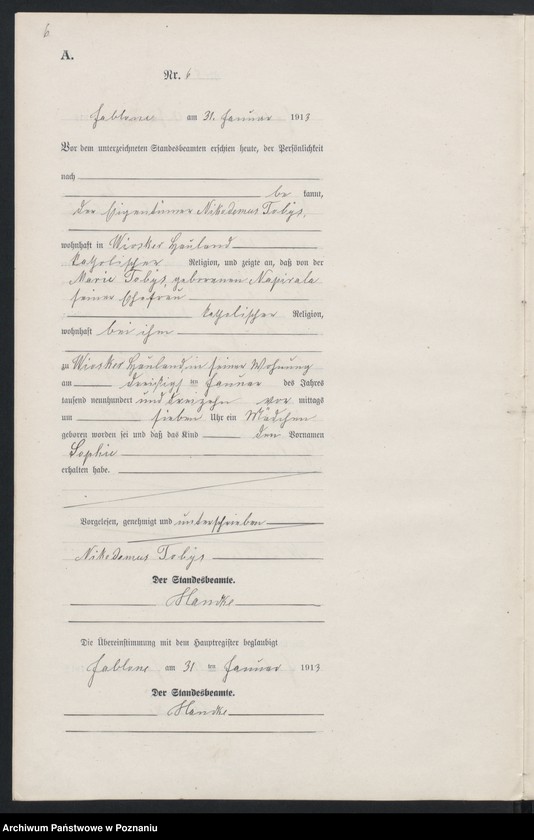 6
A.
Nr. 6
Jablone am 31. Januar 1913
Vor dem unterzeichneten Standesbeamten erschien heute, der Persönlichkeit
nach
be kannt,
der Eigentümer Nikodemus Tobys,
wohnhaft in Wiosker Hauland
katholischer Religion, und zeigte an, daß von der
Marie Tobys, geborenen Napirala
seiner Ehefrau
katholischer Religion,
wohnhaft bei ihm
zu Wiosker Hauland, in seiner Wohnung
am dreißigsten Januar des Jahres
tausend neunhundert und dreizehn vor mittags
um sieben Uhr ein Mädchen
geboren worden sei und daß das Kind den Vornamen
Sophie
erhalten habe.
Vorgelesen, genehmigt und unterschrieben
Nikodemus Tobys
Der Standesbeamte.
Handke
Die Übereinstimmung mit dem Hauptregister beglaubigt
Jablone am 31 ten Januar 1913
Der Standesbeamte.
Handke
Archiwum Państwowe w Poznaniu